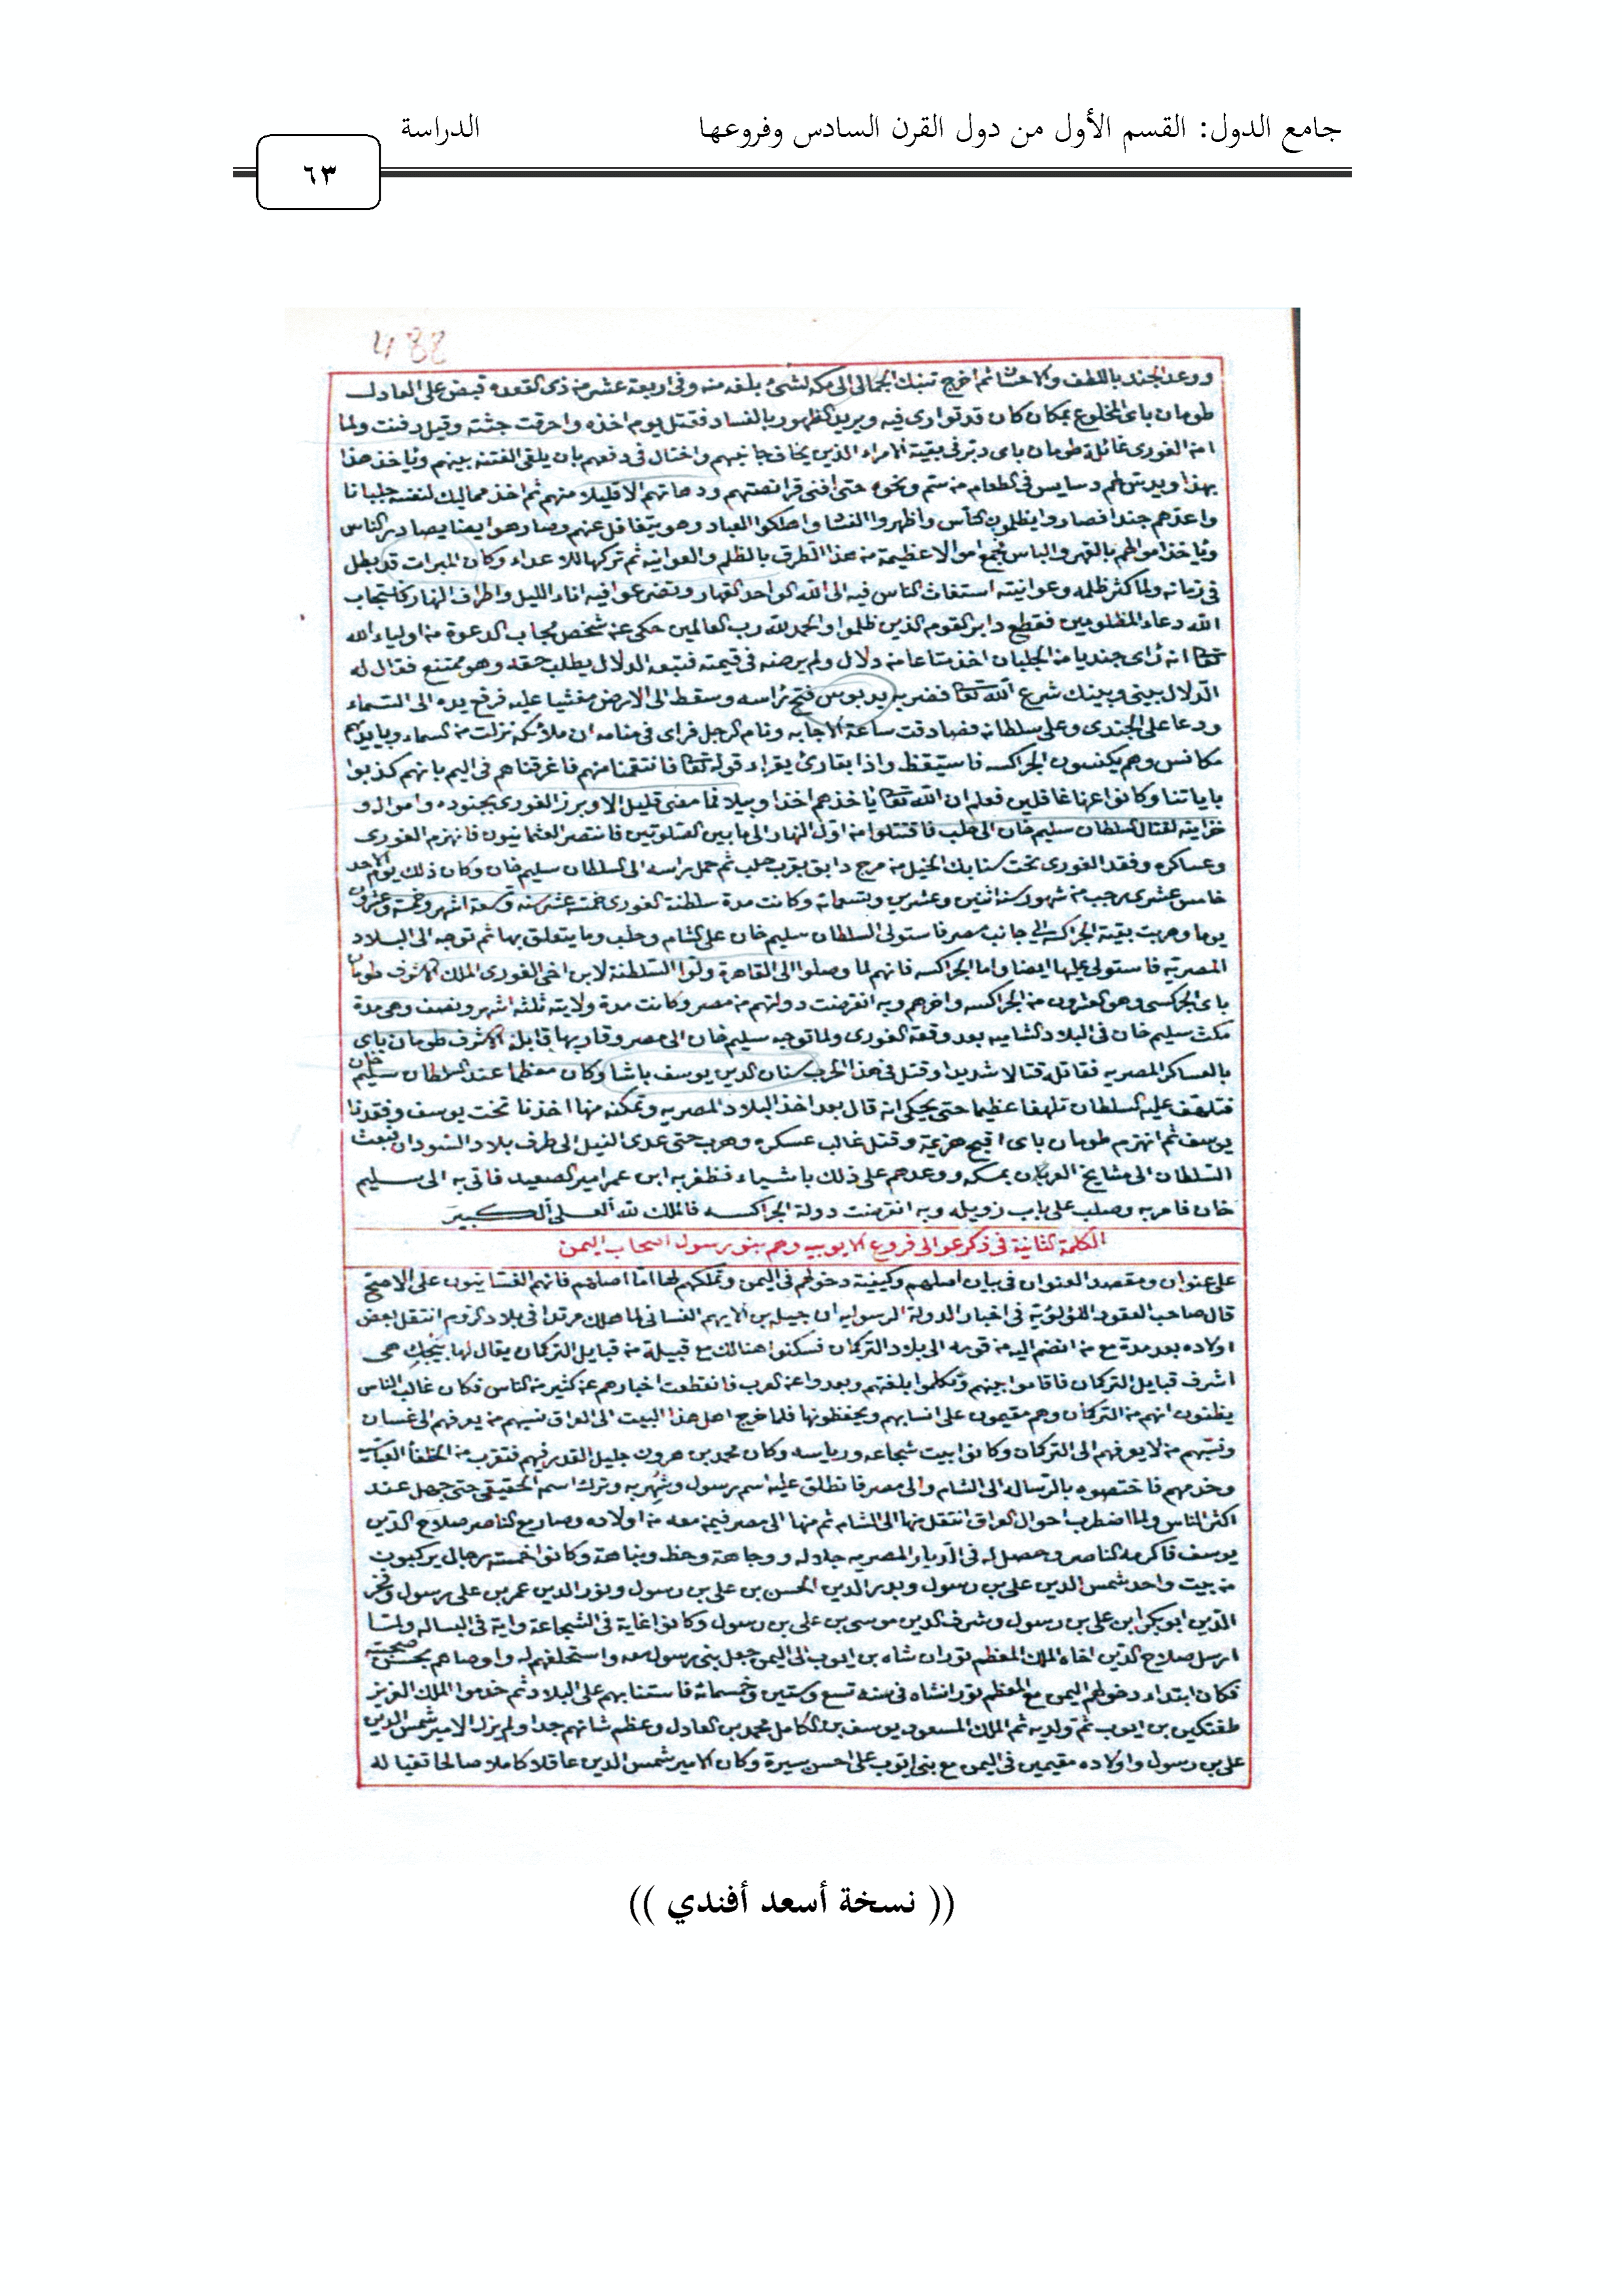 جامع الدول: القسم الأول من دول القرن السادس وفروعها الدراسة
٦٣
488
ووعد الجند باللطف والاحسان ثم اخرج تنبك الجمالى الى مكه لشىء بلغه منه وفى اربعة عشر من ذى القعده قبض على العادل
طومان باى المخلوع بمكان كان قد توارى فيه ويريد الظهور بالفساد فقتل يوم اخذه واحرقت جثته وقيل دفنت ولما
امن الغورى غائلة طومان باى دبر فى بقية الامراء الذين يخاف جانبهم واختال فى دفعهم بان يلقى الفتنه بينهم وياخذ هذا
بهذا ويدس لهم دسايس فى الطعام من سم ونحوه حتى افنى قرانصتهم ودهاتهم الا قليلا منهم ثم اخذ مماليك لنفسه جلبانا
واعدهم جندا فصاروا يظلمون الناس واظهروا الفساد واهلكوا العباد وهو يتغافل عنهم وصار هو ايضا يصادر الناس
وياخذ اموالهم بالقهر والباس فجمع اموالا عظيمة من هذا الطرف بالظلم والعوانيه ثم تركها للاعداء وكان الميراث قد بطل
فى زمانه ولما كثر ظلمه وعوانيته استغاث الناس فيه الى الله الواحد القهار وتضرعوا فيه اناء الليل واطراف النهار فاستجاب
الله دعاء المظلومين فقطع دابر القوم الذين ظلموا والحمد لله رب العالمين حكى عن شخص مجاب الدعوة من اولياء الله
تعالى انه رأى جنديا من الجلبان اخذ متاعا من دلال ولم يرضه فى قيمته فتبعه الدلال يطلب حقه وهو ممتنع فقال له
الدلال بينى وبينك شرع الله تعالى فضربه بدبوس فتح رأسه وسقط الى الارض مغشيا عليه فرفع يده الى السماء
ودعا على الجندى وعلى سلطانه فصادقت ساعة الاجابه ونام الرجل فراى فى منامه ان ملائكه نزلت من السماء وبايديهم
مكانس وهم يكنسون الجراكسه فاستيقظ واذا بقارئ يقراء قوله تعالى فانتقمنا منهم فاغرقناهم فى اليم بانهم كذبوا
باياتنا وكانوا عنها غافلين فعلم ان الله تعالى ياخذهم اخذا وبيلا فما مضى قليل الا وبرز الغورى بجنوده وامواله و
خزاينه لقتال السلطان سليم خان الى حلب فاقتتلوا من اول النهار الى ما بين الصلوتين فانتصر العثمانيون فانهزم الغورى
وعساكره وفقد الغورى تحت سنابك الخيل من مرج دابق بقرب حلب ثم حمل رأسه الى السلطان سليم خان وكان ذلك يوم الاحد
خامس عشرى رجب من شهور سنة اثنين وعشرين وتسعمائه وكانت مدة سلطنة الغورى خمسة عشر سنه وتسعة اشهر وخمسة وعشرون
يوما وهربت بقية الجراكسه الى جانب مصر فاستولى السلطان سليم خان على الشام وحلب وما يتعلق بها ثم توجه الى البلاد
المصريه فاستولى عليها ايضا واما الجراكسه فانهم لما وصلوا الى القاهرة ولوا السلطنة لابن اخى الغورى الملك الاشرف طومان
باى الجركسى وهو العشرون من الجراكسه واخرهم وبه انقرضت دولتهم من مصر وكانت مدة ولايته ثلثة اشهر ونصف وهى مدة
مكث سليم خان فى البلاد الشاميه بعد وقعة الغورى ولما توجه سليم خان الى مصر وقاربها قابله الاشرف طومان باى
بالعساكر المصريه فقاتل قتالا شديدا وقتل فى هذا الحرب سنان الدين يوسف باشا وكان معظما عند السلطان سليم خان
فتلهف عليه السلطان تلهفا عظيما حتى يحكى انه قال بعد اخذ البلاد المصريه وتمكنه منها اخذنا تخت يوسف وفقدنا
يوسف ثم انهزم طومان باى اقبح هزيمة وقتل غالب عسكره وهرب حتى عدى النيل الى طرف بلاد السودان فبعث
السلطان الى مشايخ العربان بمسكه ووعدهم على ذلك باشياء فظفر به ابن عمر امير الصعيد فاتى به الى سليم
خان فامر به وصلب على باب زويله وبه انقرضت دولة الجراكسه فالملك لله العلى الكبير
الكلمة الثانية فى ذكر عوالى فروع الايوبيه وهم بنو رسول اصحاب اليمن
على عنوان ومقصد العنوان فى بيان اصلهم وكيفية دخولهم فى اليمن وتملكهم لها اما اصلهم فانهم الغسانيون على الاصح
قال صاحب العقود اللؤلؤية فى اخبار الدولة الرسوليه ان جبله بن الايهم الغسانى لما هلك مرتدا فى بلاد الروم انتقل بعض
اولاده بعد مدة مع من انضم اليه من قومه الى بلاد التركمان فسكنوا هنالك مع قبيلة من قبايل التركمان يقال لها بيجك هى
اشرف قبايل التركمان فاقاموا بينهم وتكلموا بلغتهم وبعدوا عن العرب فانقطعت اخبارهم عن كثير من الناس فكان غالب الناس
يظنون انهم من التركمان وهم مقيمون على انسابهم ويحفظونها فلما خرج اهل هذا البيت الى العراق نسبهم من يعرفهم الى غسان
ونسبهم من لا يعرفهم الى التركمان وكانوا بيت شجاعه ورياسه وكان محمد بن هرون جليل القدر فيهم فتقرب من الخلفا العباسيه
وخدمهم فاختصوه بالرساله الى الشام والى مصر فانطلق عليه اسم رسول وشهر به وترك اسمه الحقيقى حتى جهل عند
اكثر الناس ولما اضطرب احوال العراق انتقل منها الى الشام ثم منها الى مصر فيمن معه من اولاده وصار مع الناصر صلاح الدين
يوسف فاكرمه الناصر وحصل له فى الديار المصريه جلاله ووجاهة وحظ ونباهة وكانوا خمسة رجال يركبون
من بيت واحد شمس الدين على بن رسول وبدر الدين الحسن بن على بن رسول ونور الدين عمر بن على رسول وفخر
الدين ابو بكر ابن على بن رسول وشرف الدين موسى بن على بن رسول وكانوا غاية فى الشجاعة واية فى البساله ولما
ارسل صلاح الدين اخاه الملك المعظم توران شاه بن ايوب الى اليمن جعل بنى رسول معه واستحلفهم له واوصاهم بحسن صحبته
فكان ابتداء دخولهم اليمن مع المعظم تورانشاه فى سنه تسع وستين وخمسمائة فاستنابهم على البلاد ثم خدموا الملك العزيز
طغتكين بن ايوب ثم ولديه ثم الملك المسعود يوسف بن الكامل محمد بن العادل وعظم شانهم جدا ولم يزل الامير شمس الدين
على بن رسول واولاده مقيمين فى اليمن مع بنى ايوب على احسن سيرة وكان الامير شمس الدين عاقلا كاملا صالحا تقيا له
(( نسخة أسعد أفندي ))